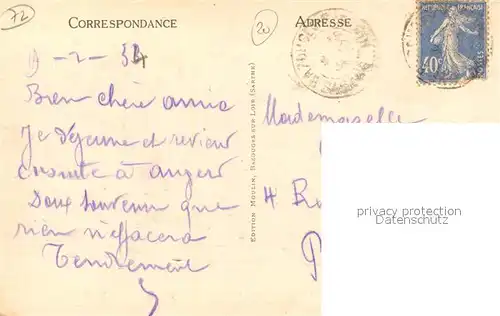 72
CORRESPONDANCE
20
ADRESSE
RÉPUBLIQUE FRANÇAISE
40c
POSTES
2-34
Bien chère amie
Je déjeune et reviens
ensuite à Angers
Doux souvenir que
rien n'effacera
Tendrement
EDITION MOULIN, BAZOUGES-SUR-LOIR (SARTHE)
Mademoiselle
4 R
P
privacy protection